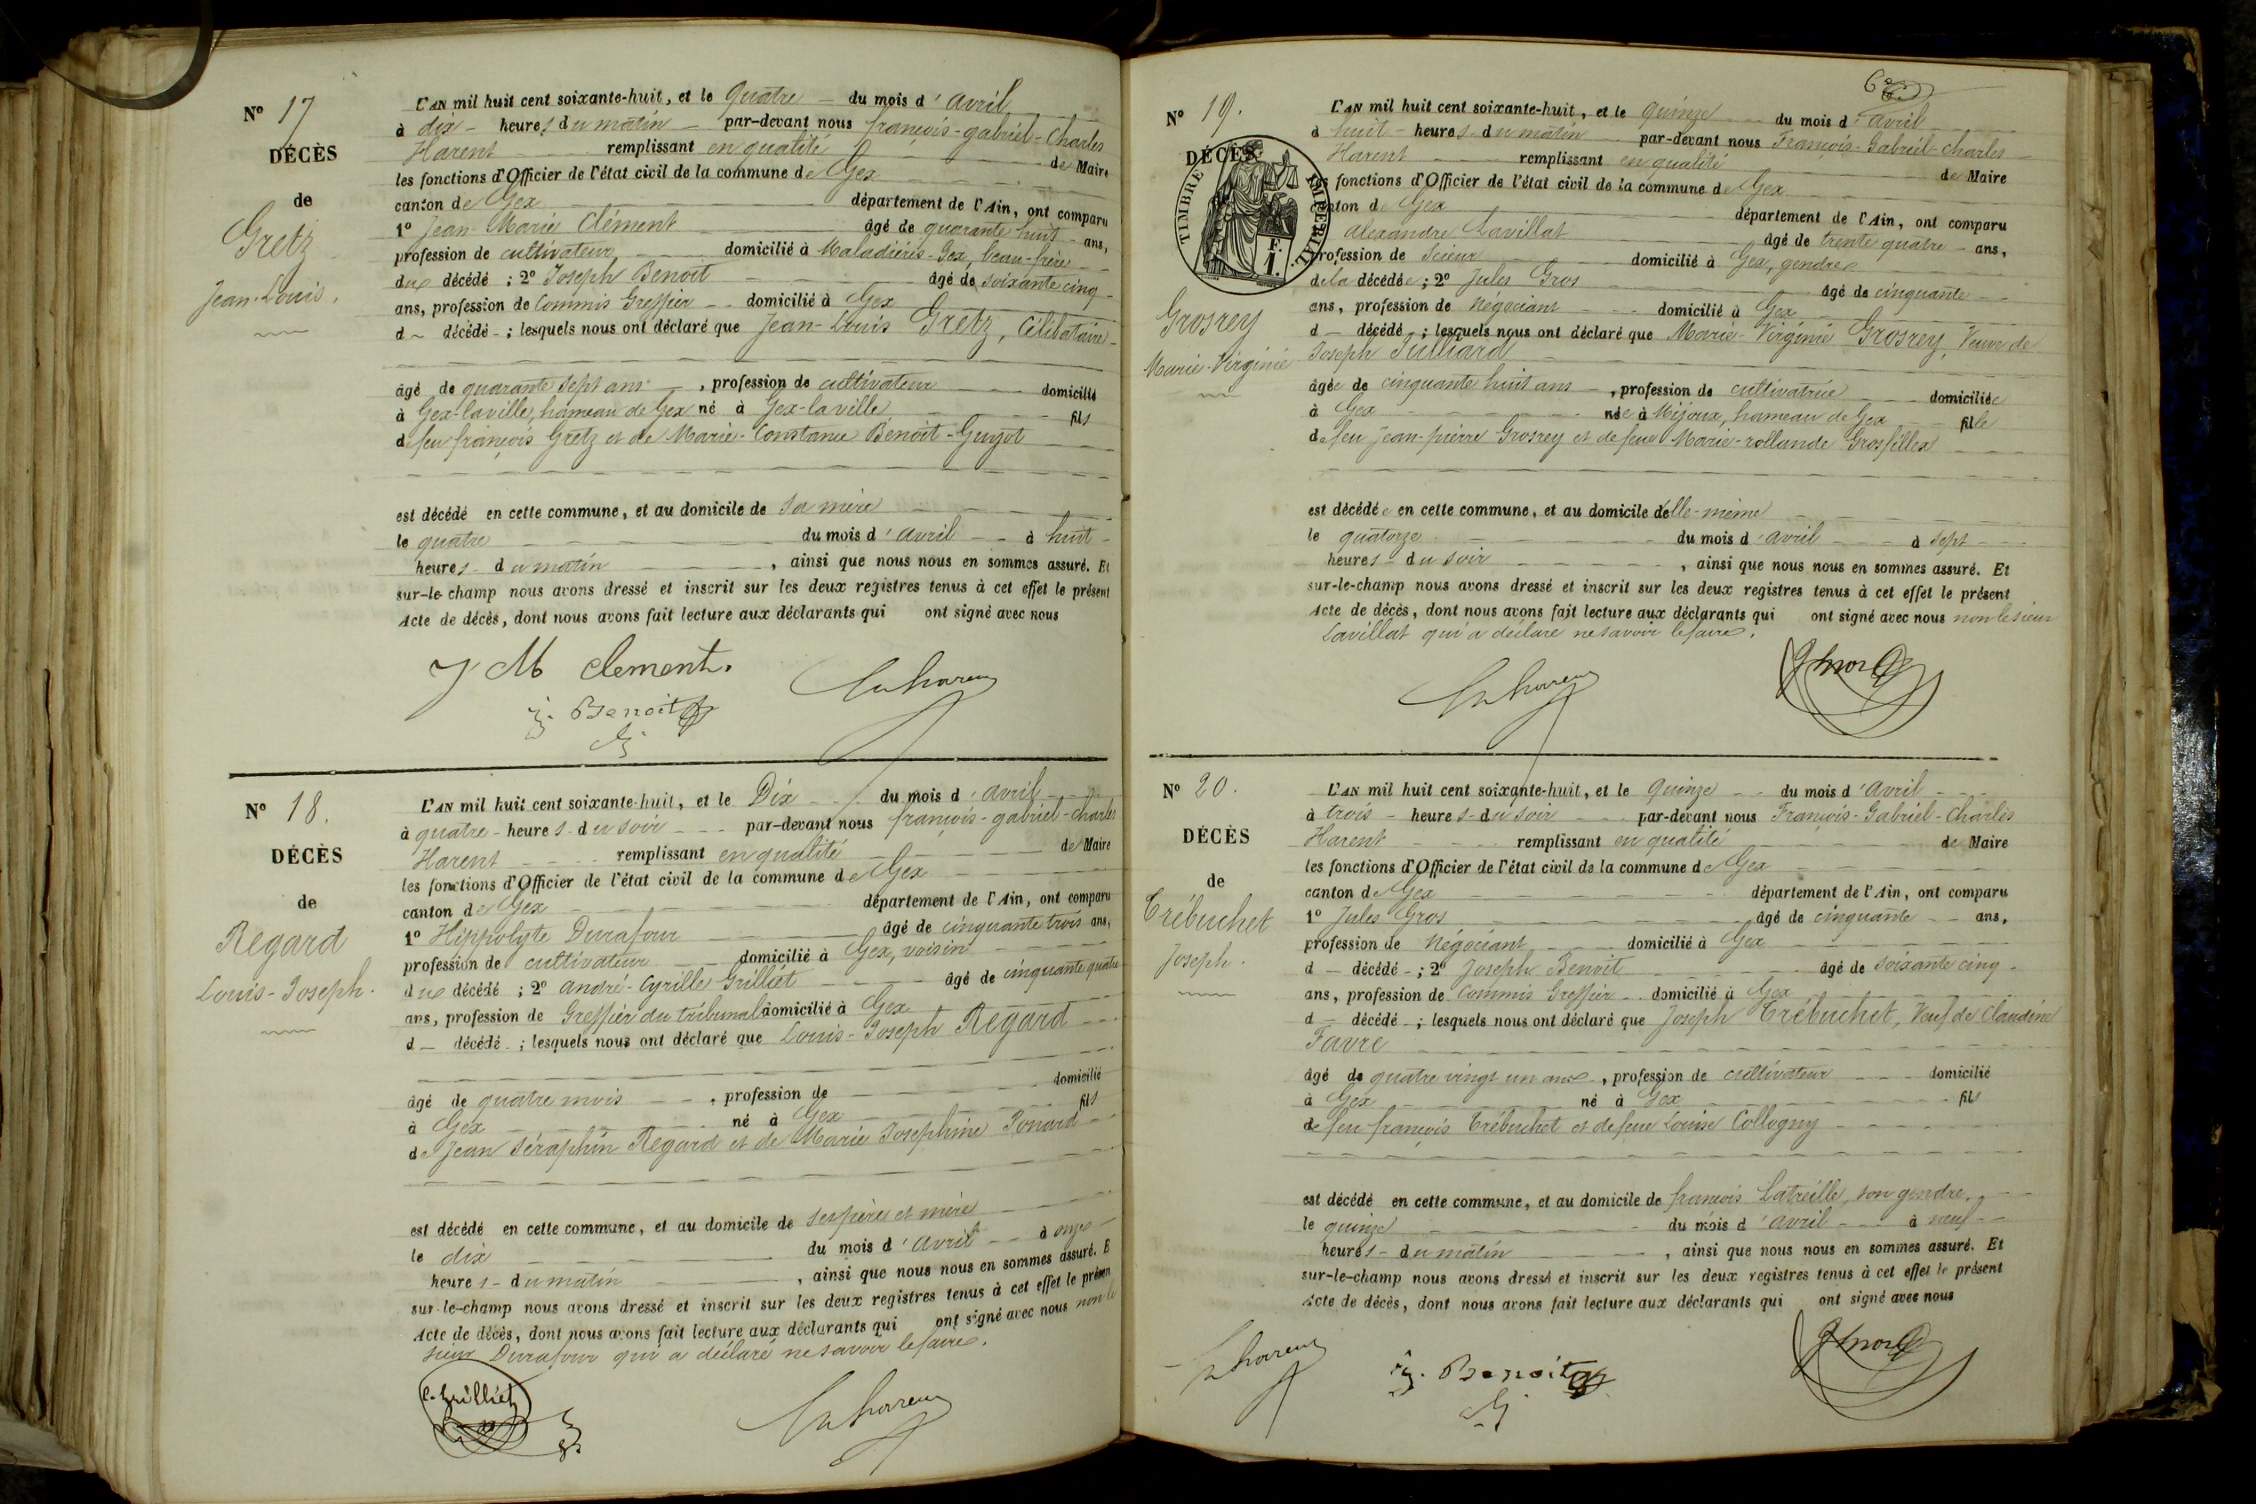 N° 17
DÉCÈS
de
Gretz
Jean-Louis.
L'AN mil huit cent soixante-huit, et le quatre du mois d'avril
à dix heures du matin par-devant nous françois-gabriel-Charles
Harent remplissant en qualité de Maire
les fonctions d'Officier de l'état civil de la commune de Gex
canton de Gex département de l'Ain, ont comparu
1° Jean-Marie Clément âgé de quarante huit ans,
profession de cultivateur domicilié à Maladières-Gex, beau-frère
du décédé ; 2° Joseph Benoit âgé de soixante cinq
ans, profession de Commis Greffier domicilié à Gex
d décédé ; lesquels nous ont déclaré que Jean-Louis Gretz, Célibataire
âgé de quarante sept ans, profession de cultivateur domicilié
à Gex-laville, hameau de Gex né à Gex-laville fils
de feu françois Gretz et de Marie-Constance Benoit-Guyot
est décédé en cette commune, et au domicile de sa mère
le quatre du mois d'avril à huit
heures du matin, ainsi que nous nous en sommes assuré. Et
sur-le-champ nous avons dressé et inscrit sur les deux registres tenus à cet effet le présent
Acte de décès, dont nous avons fait lecture aux déclarants qui ont signé avec nous
J M clement.
J. Benoit
N° 18.
DÉCÈS
de
Regard
Louis-Joseph.
L'AN mil huit cent soixante-huit, et le Dix du mois d'avril
à quatre heures du soir par-devant nous françois-gabriel-Charles
Harent remplissant en qualité de Maire
les fonctions d'Officier de l'état civil de la commune de Gex
canton de Gex département de l'Ain, ont comparu
1° Hippolyte Durafour âgé de cinquante trois ans,
profession de cultivateur domicilié à Gex, voisin
du décédé ; 2° andré-Cyrille Grilliet âgé de cinquante quatre
ans, profession de Greffier du tribunal domicilié à Gex
d décédé ; lesquels nous ont déclaré que Louis-Joseph Regard
âgé de quatre mois, profession de domicilié
à Gex né à Gex fils
de Jean Séraphin Regard et de Marie Josephine Ponard
est décédé en cette commune, et au domicile de ses père et mère
le dix du mois d'avril à onze
heures du matin, ainsi que nous nous en sommes assuré. E
sur-le-champ nous avons dressé et inscrit sur les deux registres tenus à cet effet le présen
Acte de décès, dont nous avons fait lecture aux déclarants qui ont signé avec nous non le
sieur Durafour qui a déclaré ne savoir le faire.
C. Grilliet
N° 19.
DÉCÈS
TIMBRE IMPÉRIAL
F.
1.
Grosrey
Marie-Virginie
L'AN mil huit cent soixante-huit, et le quinze du mois d'avril
à huit heures du matin par-devant nous François-Gabriel-Charles
Harent remplissant en qualité de Maire
les fonctions d'Officier de l'état civil de la commune de Gex
canton de Gex département de l'Ain, ont comparu
alexandre Lavillat âgé de trente quatre ans,
profession de Scieur domicilié à Gex, gendre
de la décédée ; 2° Jules Gros âgé de cinquante
ans, profession de Négociant domicilié à Gex
d décédé ; lesquels nous ont déclaré que Marie-Virginie Grosrey, Veuve de
Joseph Julliard
âgée de cinquante huit ans, profession de cultivatrice domiciliée
à Gex née à Mijoux, hameau de Gex fille
de feu Jean-pierre Grosrey et de feue Marie-rollande Grosfillex
est décédée en cette commune, et au domicile d'elle-même
le quatorze du mois d'avril à sept
heures du soir, ainsi que nous nous en sommes assuré. Et
sur-le-champ nous avons dressé et inscrit sur les deux registres tenus à cet effet le présent
Acte de décès, dont nous avons fait lecture aux déclarants qui ont signé avec nous non le sieur
Lavillat qui a déclaré ne savoir le faire.
N° 20.
DÉCÈS
de
Trébuchet
Joseph.
L'AN mil huit cent soixante-huit, et le quinze du mois d'avril
à trois heures du soir par-devant nous François-Gabriel-Charles
Harent remplissant en qualité de Maire
les fonctions d'Officier de l'état civil de la commune de Gex
canton de Gex département de l'Ain, ont comparu
1° Jules Gros âgé de cinquante ans,
profession de Négociant domicilié à Gex
d décédé ; 2° Joseph Benoit âgé de soixante cinq
ans, profession de Commis Greffier domicilié à Gex
d décédé ; lesquels nous ont déclaré que Joseph Trébuchet, Veuf de Claudine
Favre
âgé de quatre vingt un ans, profession de cultivateur domicilié
à Gex né à Gex fils
de feu françois Trébuchet et de feue Louise Collogny
est décédé en cette commune, et au domicile de françois Latreille, son gendre,
le quinze du mois d'avril à neuf
heures du matin, ainsi que nous nous en sommes assuré. Et
sur-le-champ nous avons dressé et inscrit sur les deux registres tenus à cet effet le présent
Acte de décès, dont nous avons fait lecture aux déclarants qui ont signé avec nous
J. Benoit